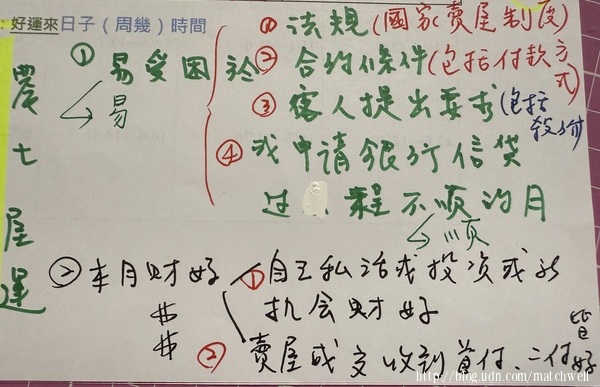 :好運來日子（周幾）時間
農七屋運
① 易受困於
→易
① 法規(國家賣屋制度)
② 合約條件(包括付款方式)
③ 客人提出要求(包括殺价)
④ 我申請銀行信貸
过 程不順的月
→順
② 本月財好
$$
① 自己私活或投资或新
机会財好
② 賣屋成交收到首付二付好
皆
http://blog.udn.com/matchwell